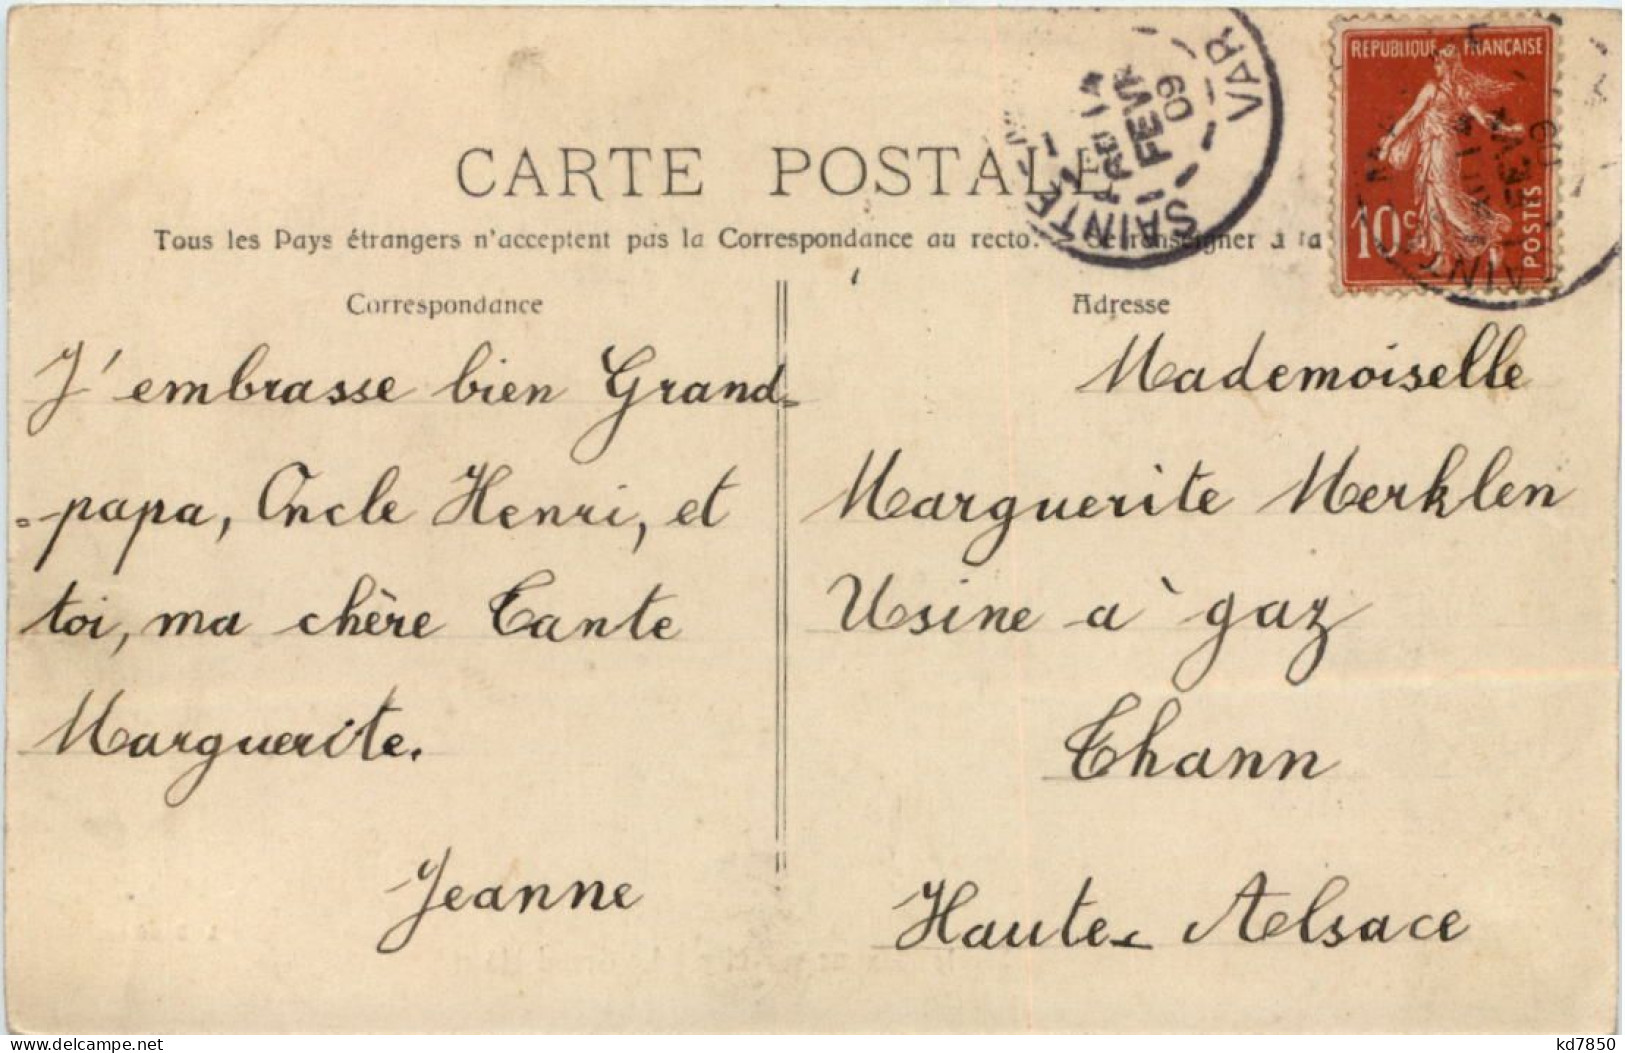 CARTE POSTALE
Tous les Pays étrangers n'acceptent pas la Correspondance au recto. Se renseigner à la
Correspondance
J'embrasse bien Grand-
-papa, Oncle Henri, et
toi, ma chère Tante
Marguerite.
Jeanne
SAINTE
14
FEVR
09
VAR
REPUBLIQUE FRANÇAISE
10c
POSTES
Adresse
Mademoiselle
Marguerite Merklen
Usine à gaz
Thann
Haute-Alsace
delcampe.net
kd7850